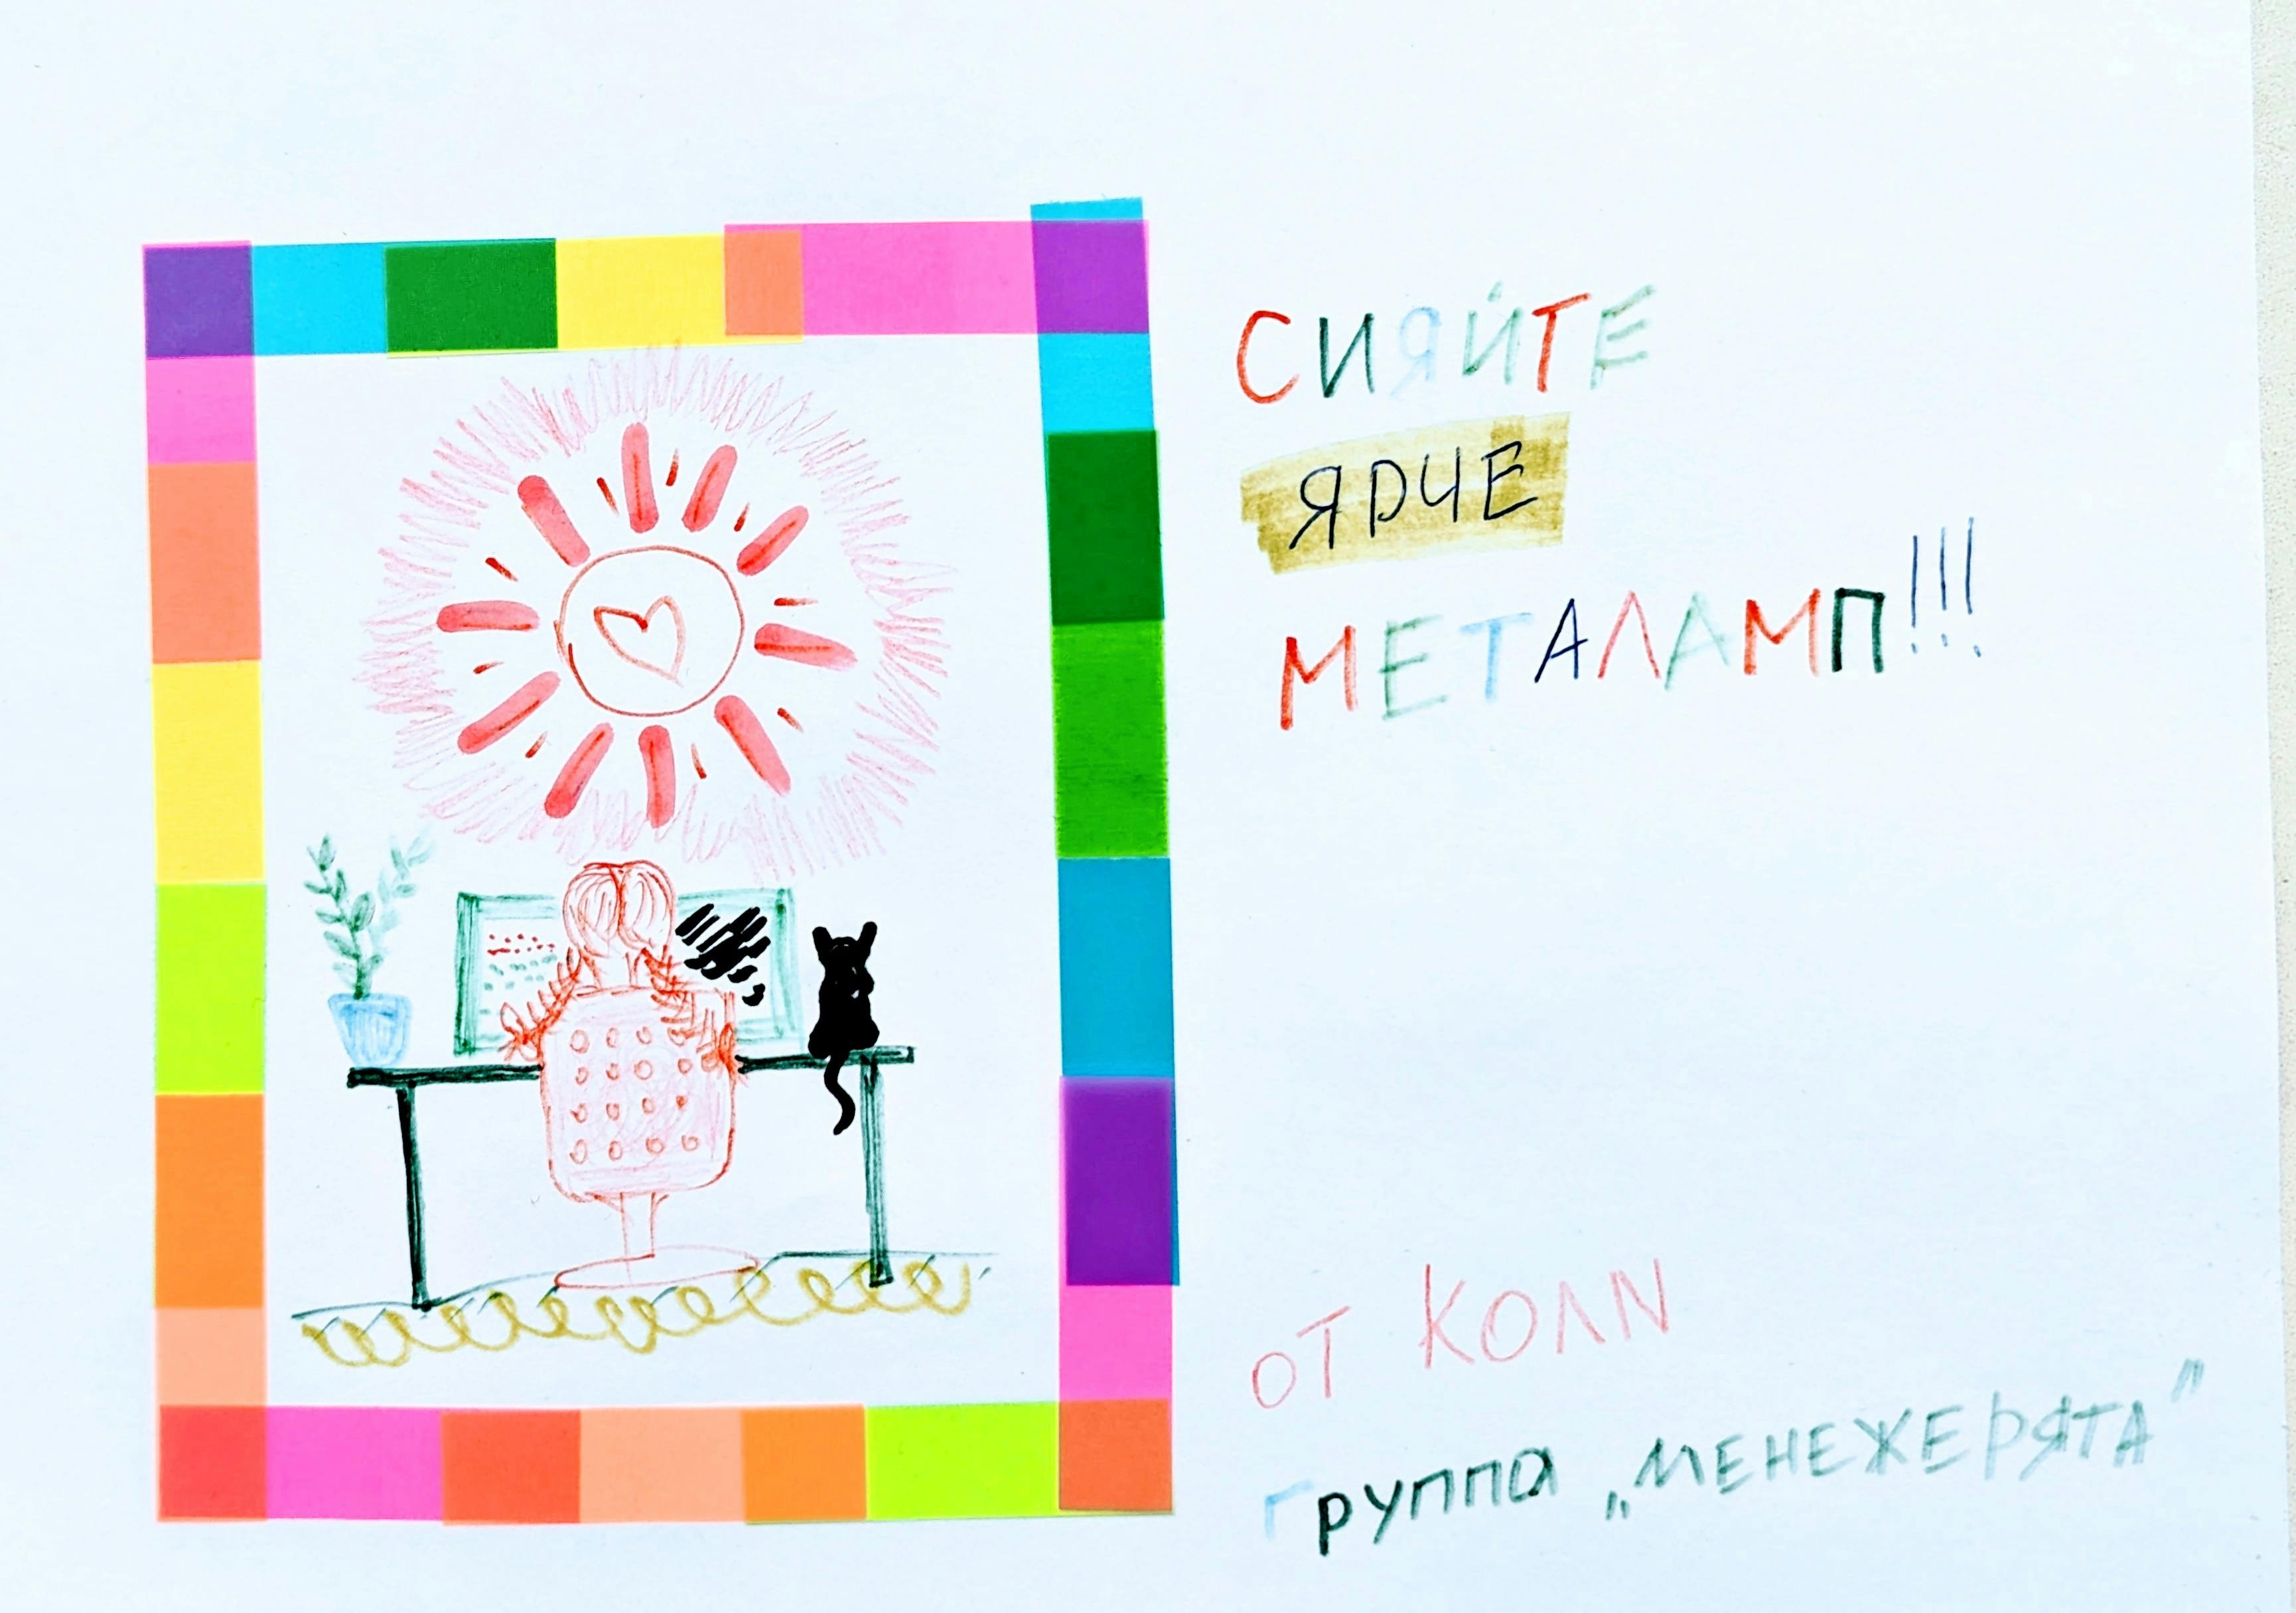 СИЯЙТЕ
ЯРЧЕ
МЕТАЛАМП!!!
ОТ КОЛИ
ГРУППА „МЕНЕЖЕРЯТА"